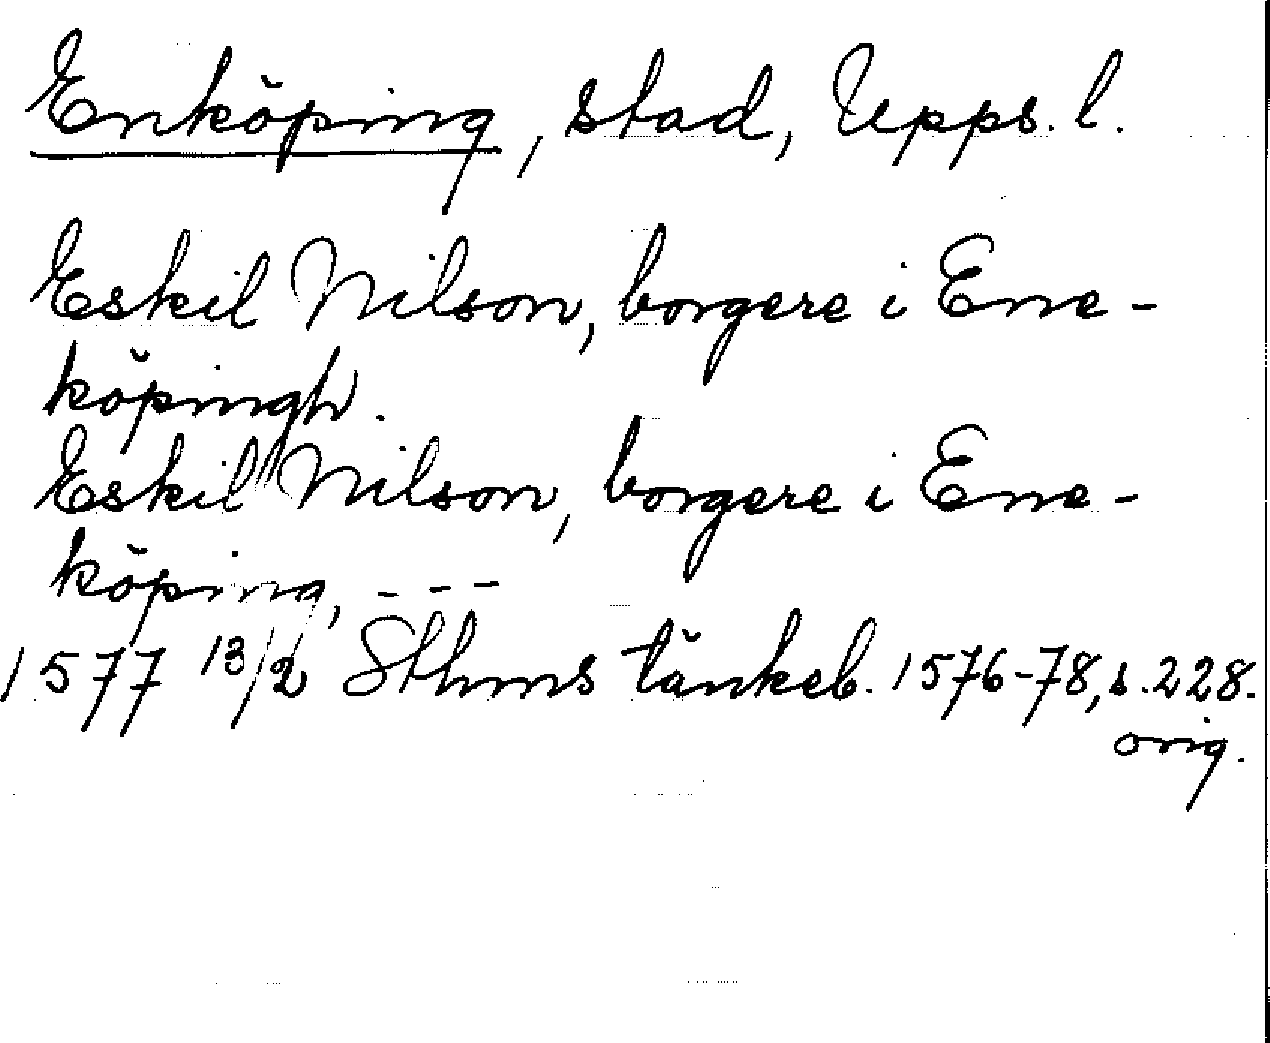 Enköping, stad, Upps. l.
Eskil Nilson, borgere i Ene-
köpingh.
Eskil Nilson, borgere i Ene-
köping, - - -
1577 13/2 Sthms tänkeb. 1576-78, s. 228.
orig.